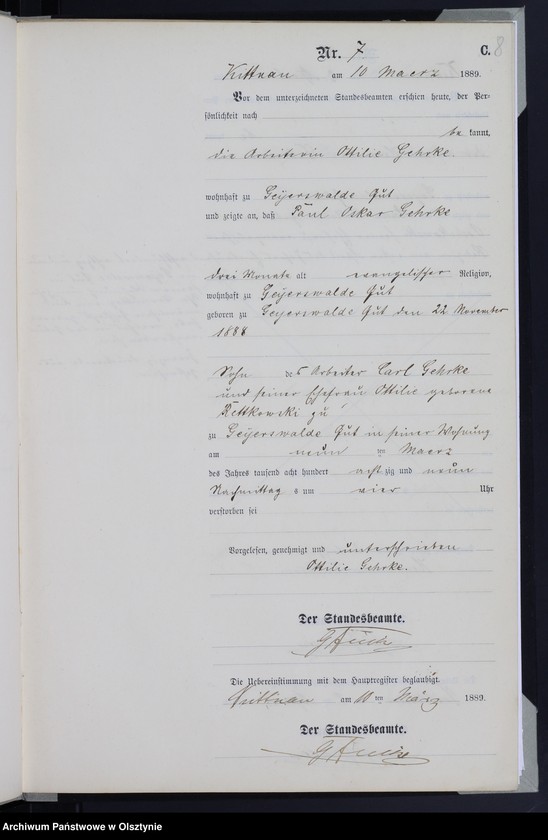 Nr. 7 C. 8
Kittnau am 10 Maerz 1889.
Vor dem unterzeichneten Standesbeamten erschien heute, der Per-
sönlichkeit nach
be kannt,
die Arbeiterin Ottilie Gehrke.
wohnhaft zu Geyerswalde Gut
und zeigte an, daß Paul Oskar Gehrke
drei Monate alt evangelischer Religion,
wohnhaft zu Geyerswalde Gut
geboren zu Geyerswalde Gut den 22 November
1888
Sohn des Arbeiter Carl Gehrke
und seiner Ehefrau Ottilie geborene
Rettkowski zu
zu Geyerswalde Gut in seiner Wohnung
am neun ten Maerz
des Jahres tausend acht hundert acht zig und neun
Nachmittag s um vier Uhr
verstorben sei
Vorgelesen, genehmigt und unterschrieben
Ottilie Gehrke.
Der Standesbeamte.
Die Uebereinstimmung mit dem Hauptregister beglaubigt.
Kittnau am 10 ten März 1889.
Der Standesbeamte.
Archiwum Państwowe w Olsztynie